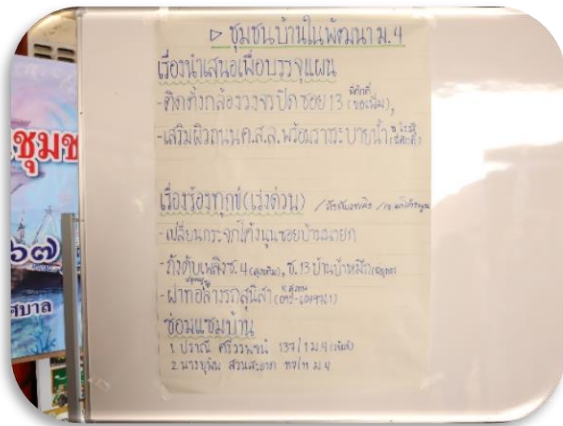 ▷ ชุมชนบ้านในพัฒนา ม.4
เรื่องนำเสนอเพื่อบรรจุแผน
- ติดตั้งกล้องวงจรปิด ซอย 13 (ขอเพิ่ม),
- เสริมผิวถนน ค.ส.ล. พร้อมรางระบายน้ำ
เรื่องร้องทุกข์ (เร่งด่วน)
- เปลี่ยนกระจกโค้งนูนซอยบ้านนายก
- ถังดับเพลิง ซ.4, ซ.13 บ้านป้าหมึก
- ฝาท่อล้างรถสุนิสา
ซ่อมแซมบ้าน
1. ปราณี 137/1 ม.4
2. นางบุพิน ม.4
ชุมช
๖๗
ศบาล